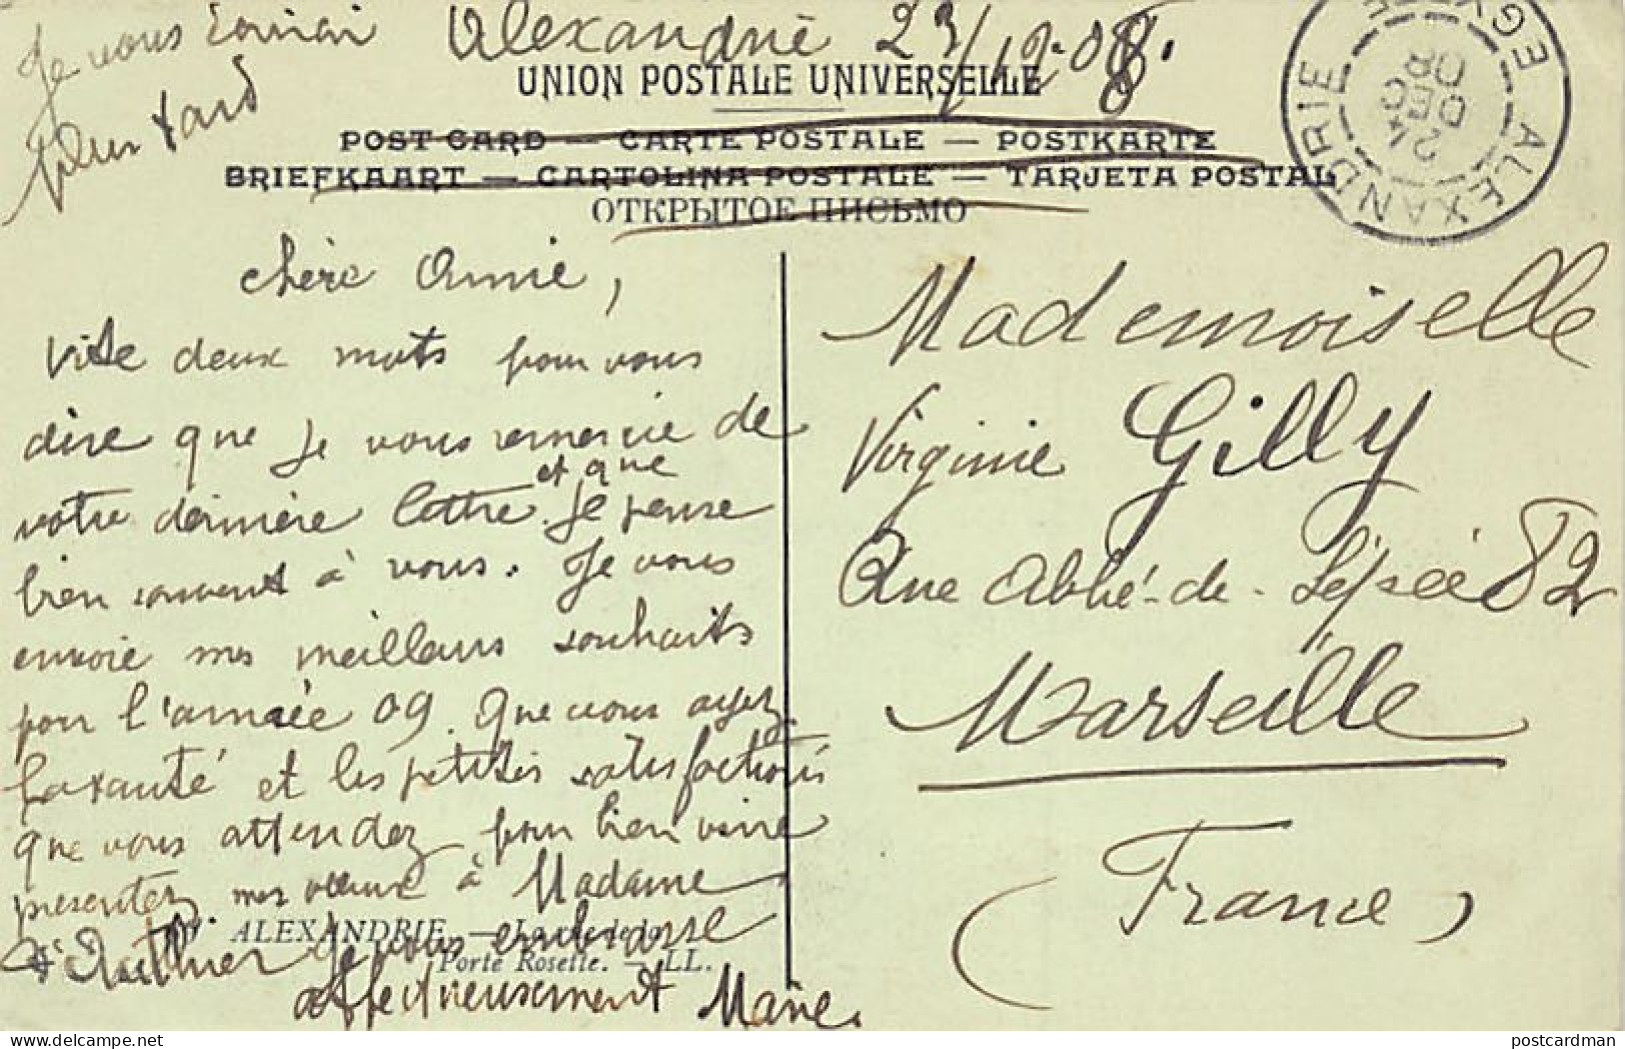 Je vous écrirai
plus tard
Alexandrie 23/12-08.
UNION POSTALE UNIVERSELLE
POST CARD — CARTE POSTALE — POSTKARTE
BRIEFKAART — CARTOLINA POSTALE — TARJETA POSTAL
ОТКРЫТОЕ ПИСЬМО
ALEXANDRIE
24
DEC
08
chère Annie,
vite deux mots pour vous
dire que je vous remercie de
votre dernière lettre et que je pense
bien souvent à vous. Je vous
envoie mes meilleurs souhaits
pour l'année 09. Que vous ayez
la santé et les petites satisfactions
que vous attendez, pour bien
presentez mes vœux à Madame
Gauthier je vous embrasse
affectueusement Marie.
ALEXANDRIE. — La rue de la
Porte Rosette. — LL.
Mademoiselle
Virginie Gilly
Rue Abbé-de-l'épée 82
Marseille
(France)
postcardman